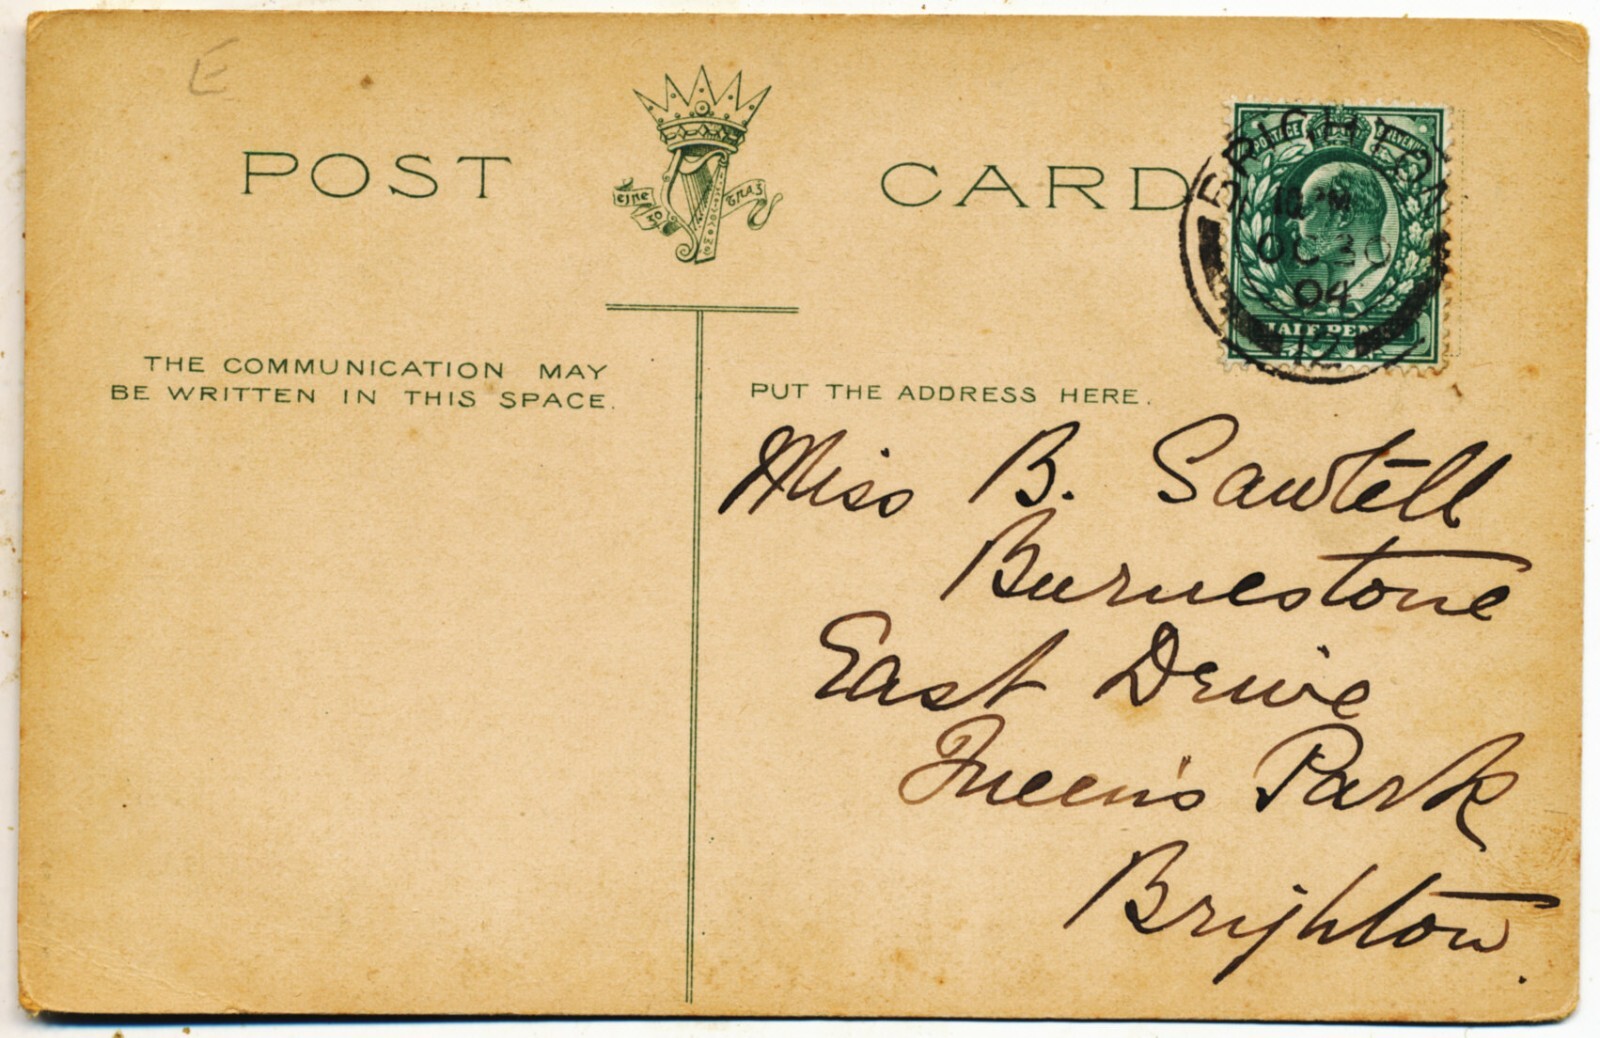 E
POST CARD
EIRE GO BRAS
BRIGHTON
10 PM
OC 30
04
12
POSTAGE REVENUE
HALF PENNY
THE COMMUNICATION MAY
BE WRITTEN IN THIS SPACE.
PUT THE ADDRESS HERE.
Miss B. Sawtell
Burnestone
East Drive
Queen's Park
Brighton.